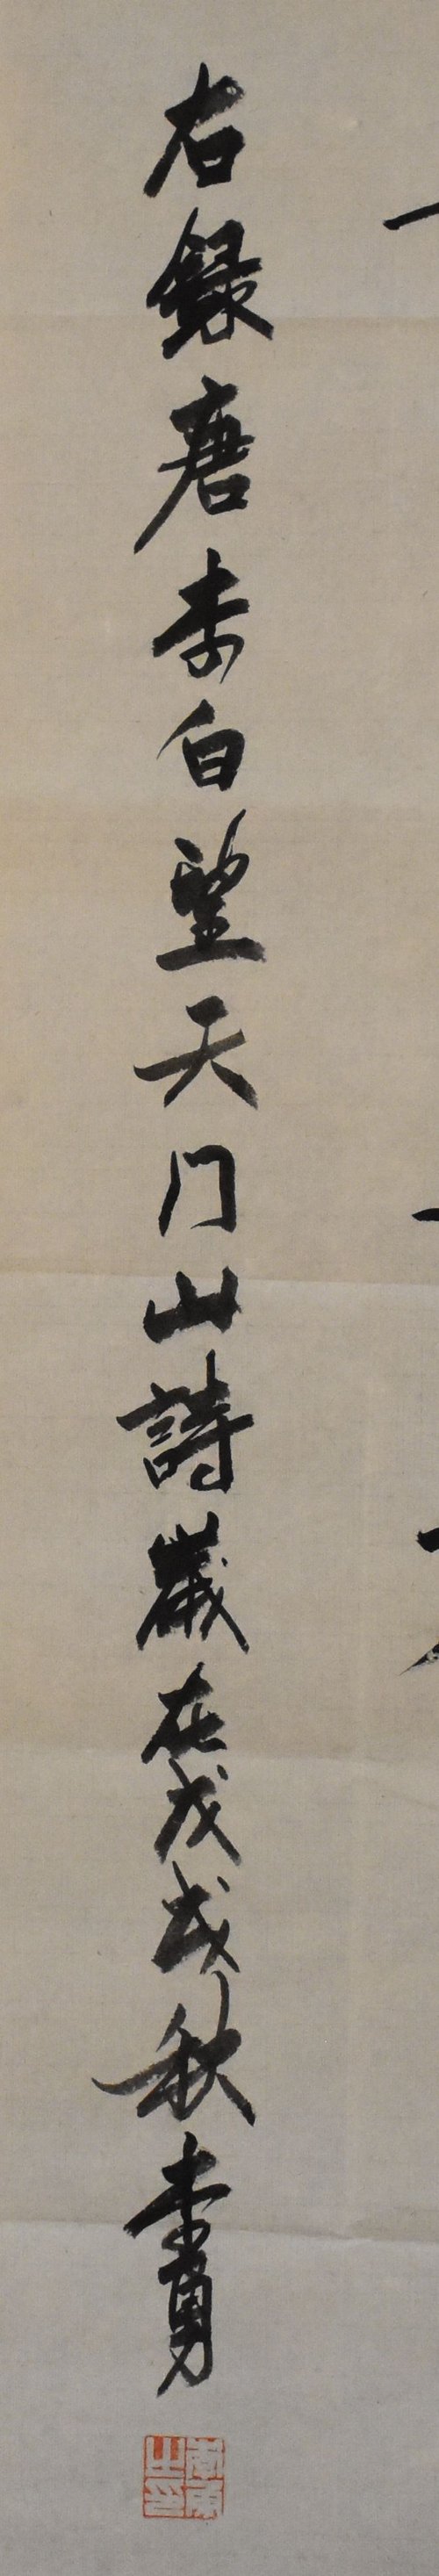 右録唐李白望天门山詩歲在戊戌秋李勇
李勇之印